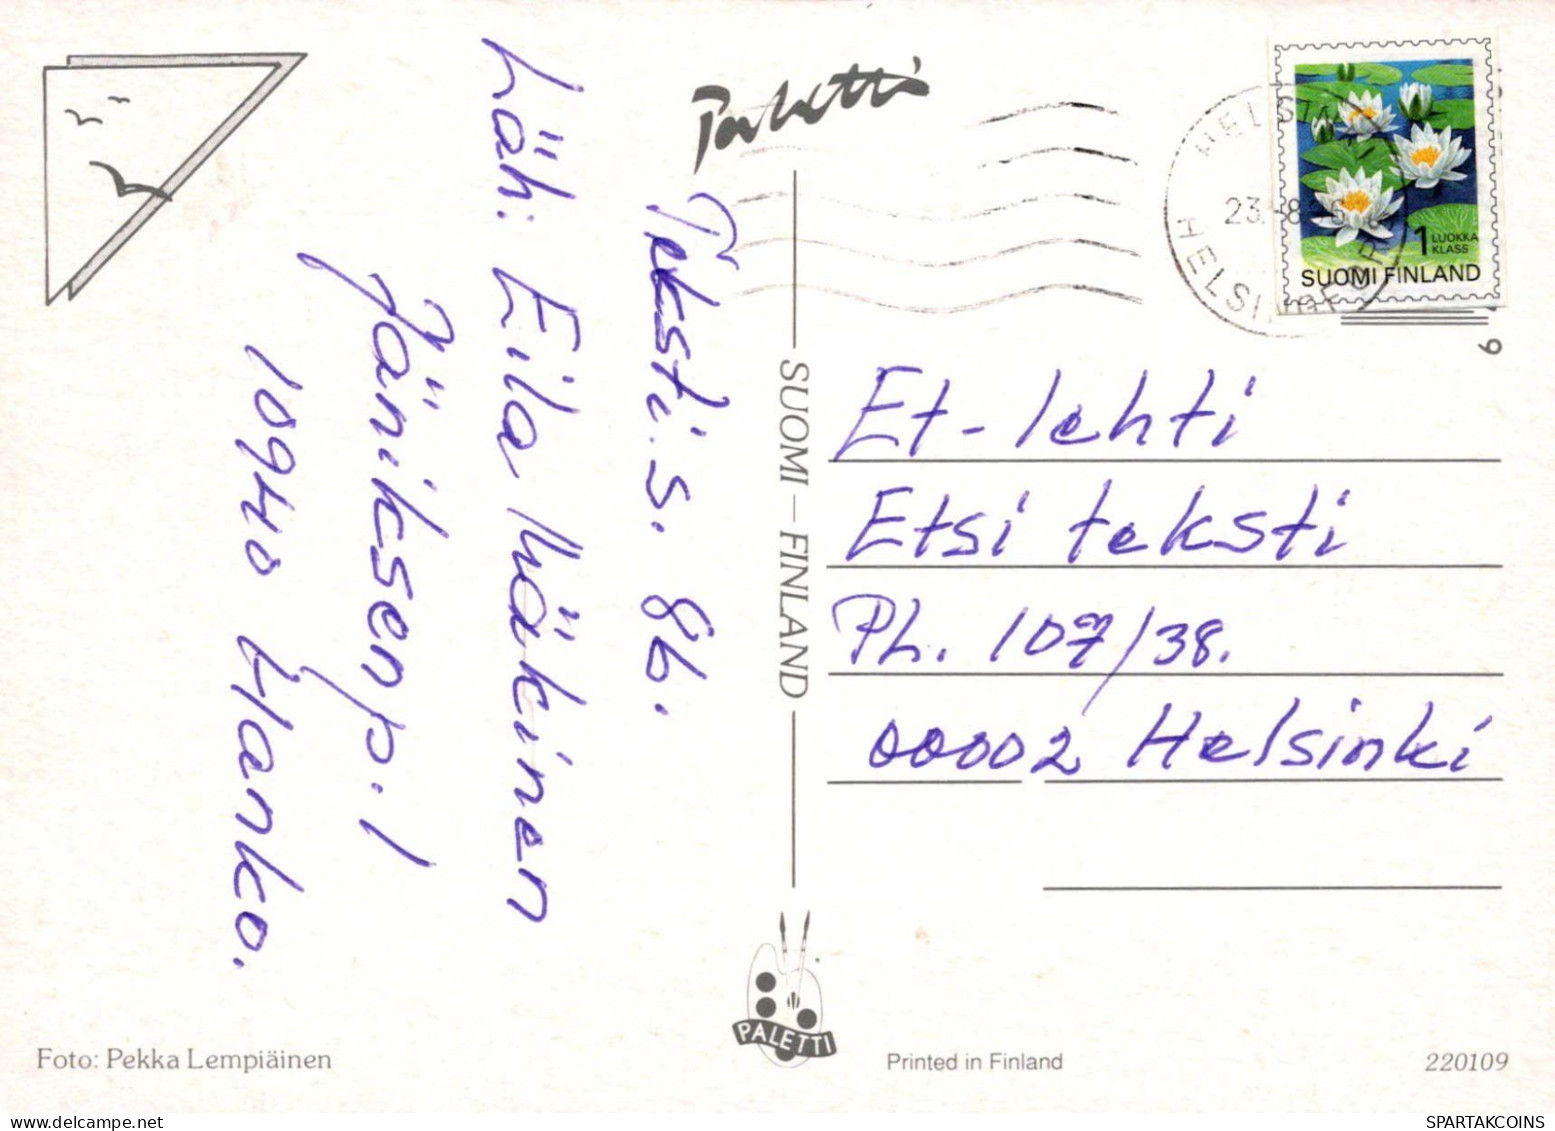 Paletti
Teksti.s. 86.
Läh: Eila Mäkinen
Jäniksenp. 1
10940 Hanko.
SUOMI – FINLAND
HELSINKI
23. 8. 96
HELSINGFORS
1 LUOKKA
KLASS
SUOMI FINLAND
9
Et-lehti
Etsi teksti
PL. 107/38.
00002 Helsinki
PALETTI
Foto: Pekka Lempiäinen
Printed in Finland
220109
SPARTAKCOINS